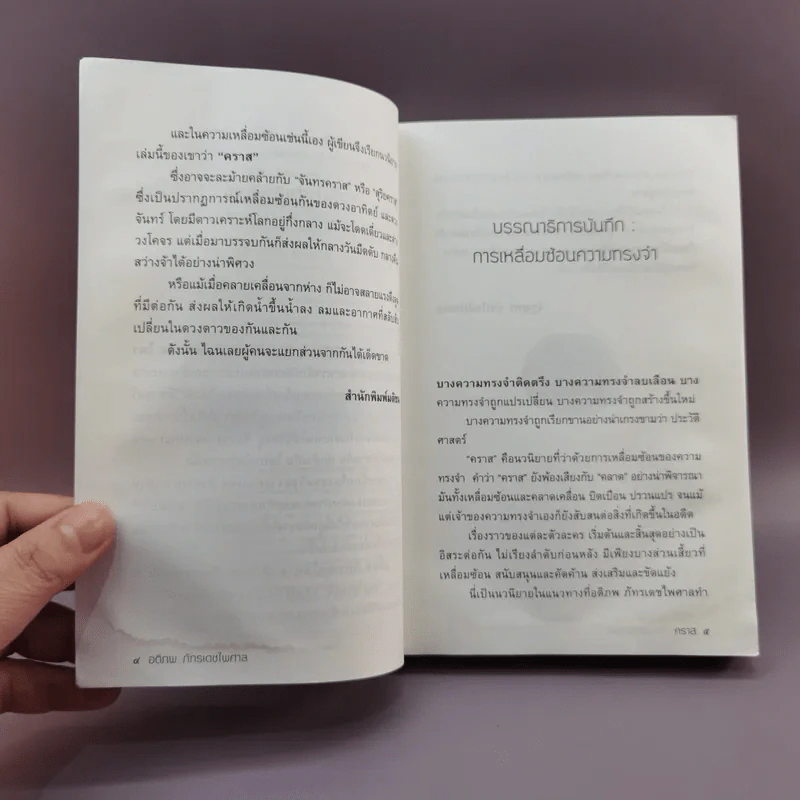 และในความเหลื่อมซ้อนเช่นนี้เอง ผู้เขียนจึงเรียกนวนิยาย
เล่มนี้ของเขาว่า “คราส”
ซึ่งอาจจะละม้ายคล้ายกับ “จันทรคราส” หรือ “สุริยคราส”
ซึ่งเป็นปรากฏการณ์เหลื่อมซ้อนกันของดวงอาทิตย์ และดวง
จันทร์ โดยมีดาวเคราะห์โลกอยู่กึ่งกลาง แม้จะโดดเดี่ยวและ
วงโคจร แต่เมื่อมาบรรจบกันก็ส่งผลให้กลางวันมืดดับ
สว่างจ้าได้อย่างน่าพิศวง
หรือแม้เมื่อคลายเคลื่อนจากห่าง ก็ไม่อาจสลายแรงดึงดูด
ที่มีต่อกัน ส่งผลให้เกิดน้ำขึ้นน้ำลง ลมและอากาศที่
เปลี่ยนในดวงดาวของกันและกัน
ดังนั้น ไฉนเลยผู้คนจะแยกส่วนจากกันได้เด็ดขาด
สำนักพิมพ์มติชน
๔ อติภพ ภัทรเดชไพศาล
บรรณาธิการบันทึก :
การเหลื่อมซ้อนความทรงจำ
บางความทรงจำติดตรึง บางความทรงจำลบเลือน บาง
ความทรงจำถูกแปรเปลี่ยน บางความทรงจำถูกสร้างขึ้นใหม่
บางความทรงจำถูกเรียกขานอย่างน่าเกรงขามว่า ประวัติ
ศาสตร์
“คราส” คือนวนิยายที่ว่าด้วยการเหลื่อมซ้อนของความ
ทรงจำ คำว่า “คราส” ยังพ้องเสียงกับ “คลาด” อย่างน่าพิจารณา
มันทั้งเหลื่อมซ้อนและคลาดเคลื่อน บิดเบือน ปรวนแปร จนแม้
แต่เจ้าของความทรงจำเองก็ยังสับสนต่อสิ่งที่เกิดขึ้นในอดีต
เรื่องราวของแต่ละตัวละคร เริ่มต้นและสิ้นสุดอย่างเป็น
อิสระต่อกัน ไม่เรียงลำดับก่อนหลัง มีเพียงบางส่วนเสี้ยวที่
เหลื่อมซ้อน สนับสนุนและคัดค้าน ส่งเสริมและขัดแย้ง
นี่เป็นนวนิยายในแนวทางที่อติภพ ภัทรเดชไพศาลทำ
คราส ๕